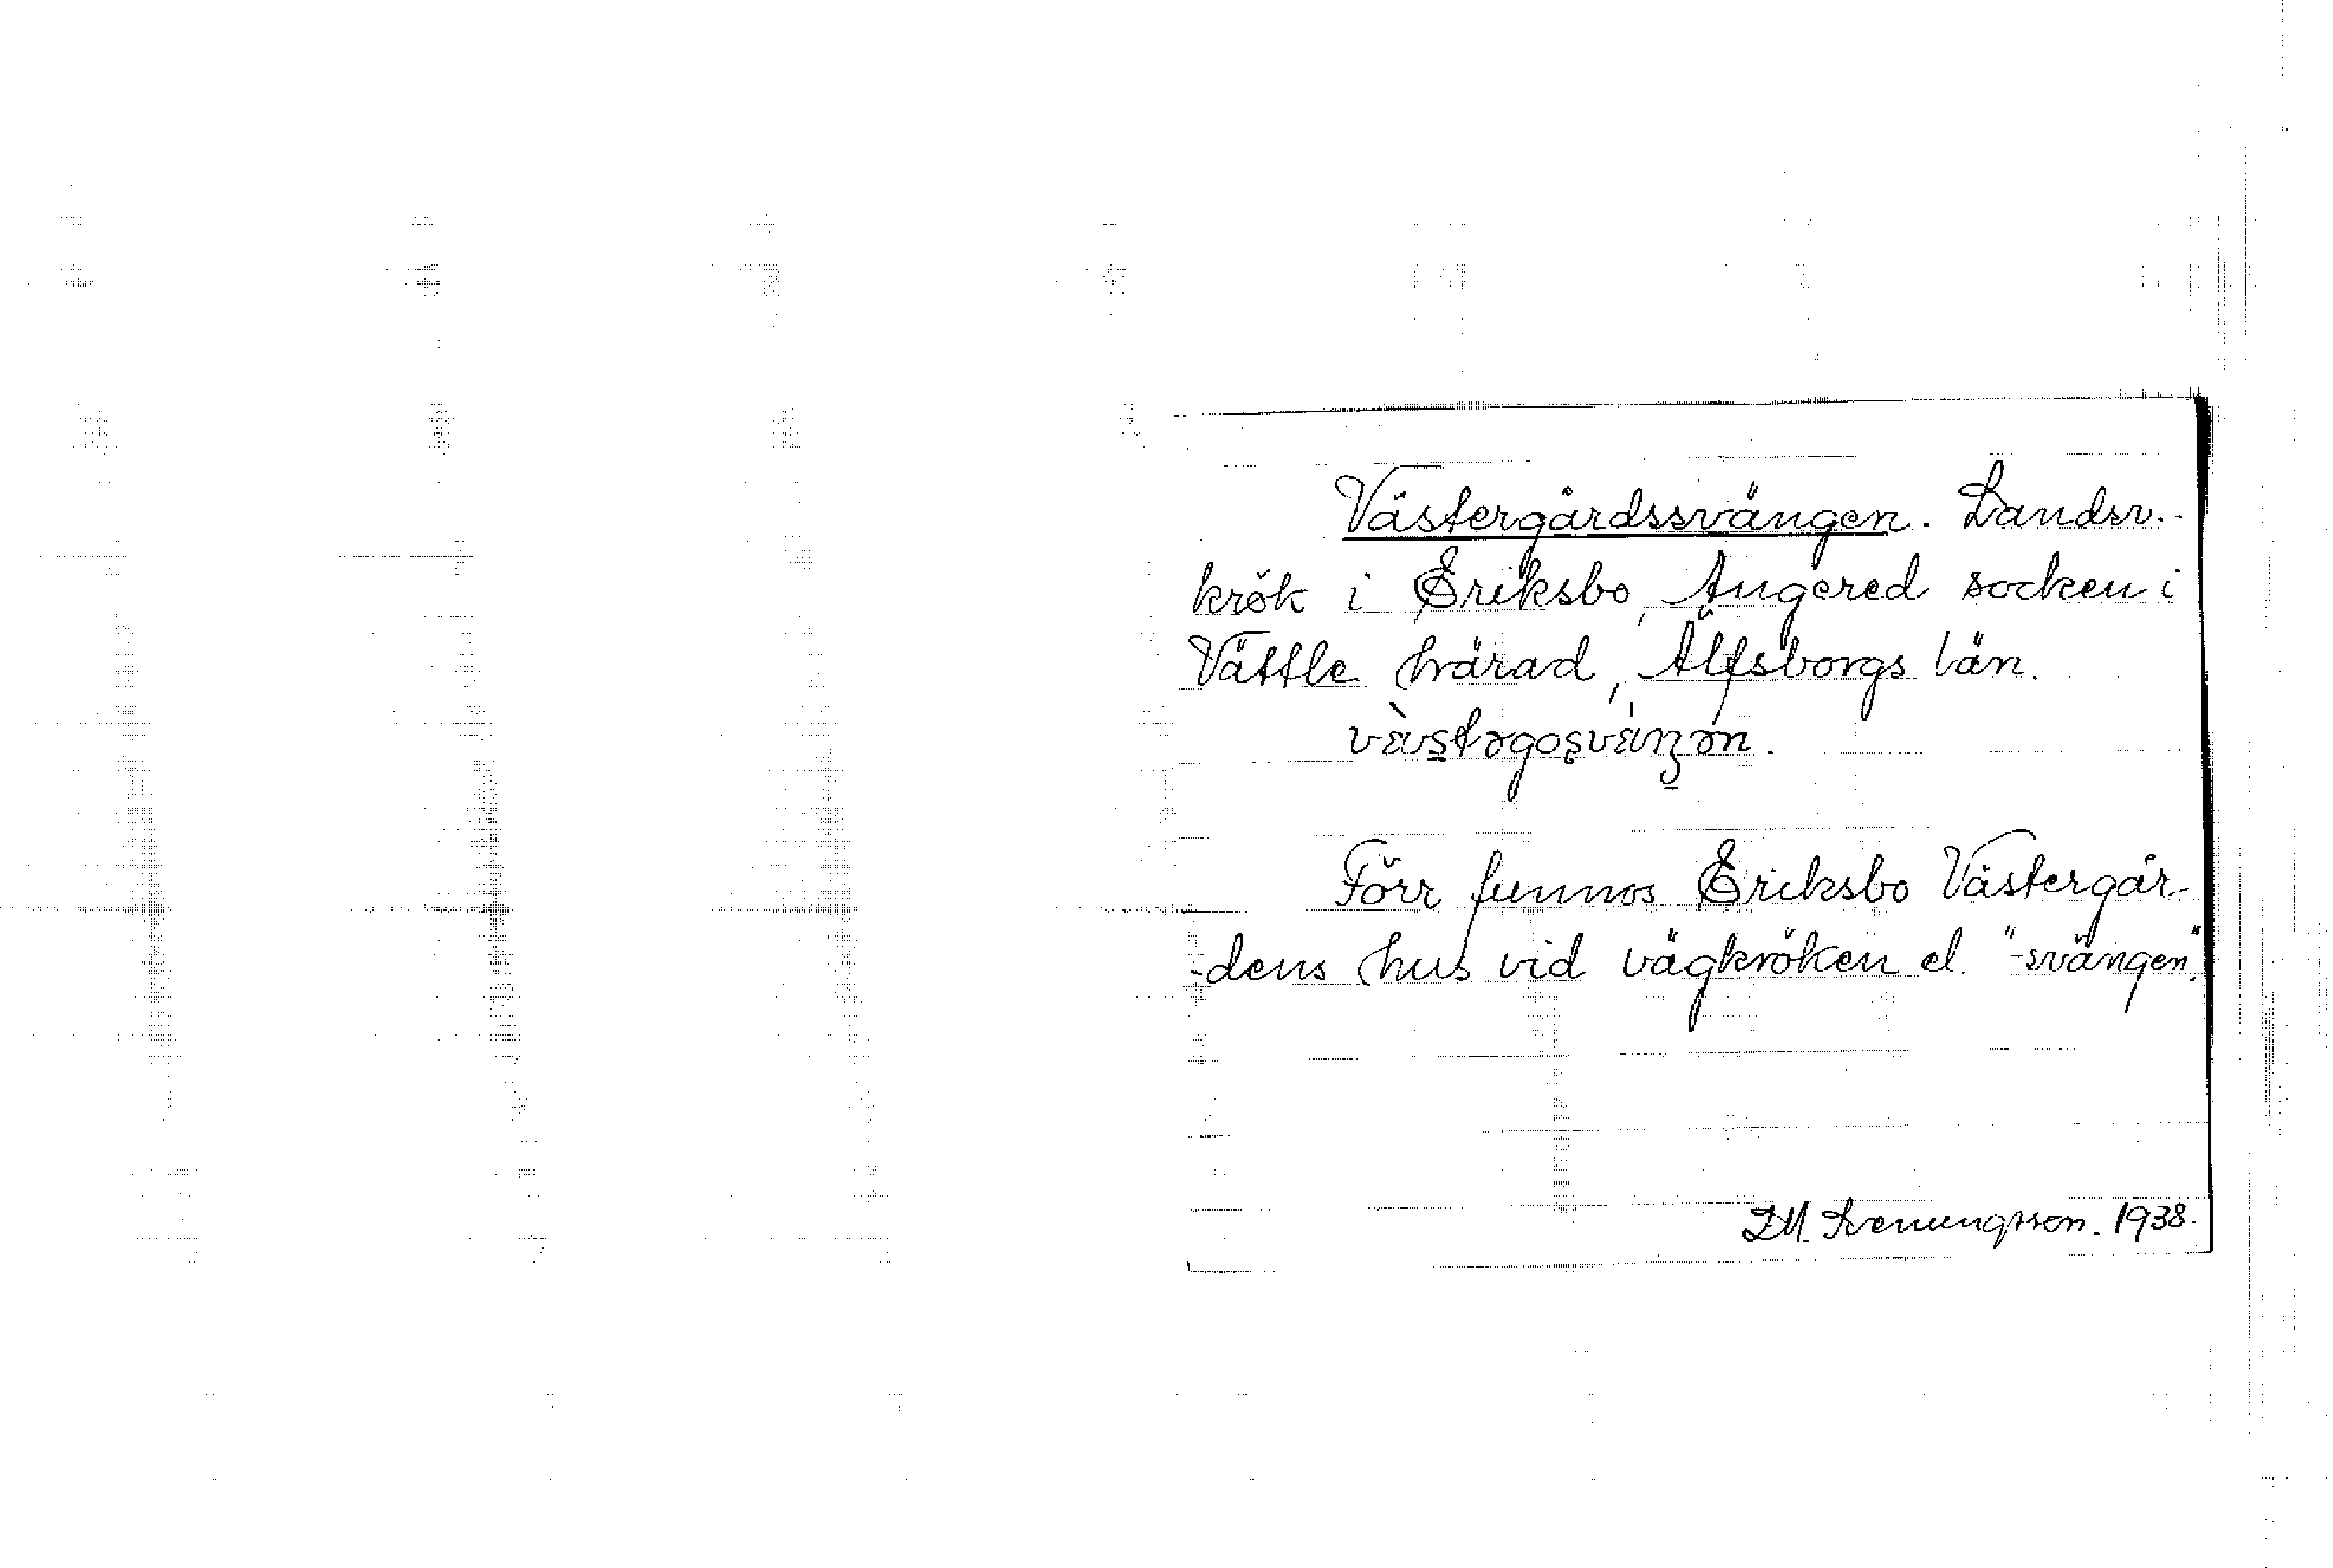 Västergårdssvängen. Landsv.-
krök i Eriksbo, Angered socken i
Vättle härad, Älfsborgs län.
Förr funnos Eriksbo Västergår-
-dens hus vid vägkröken el. "-svängen".
1938.